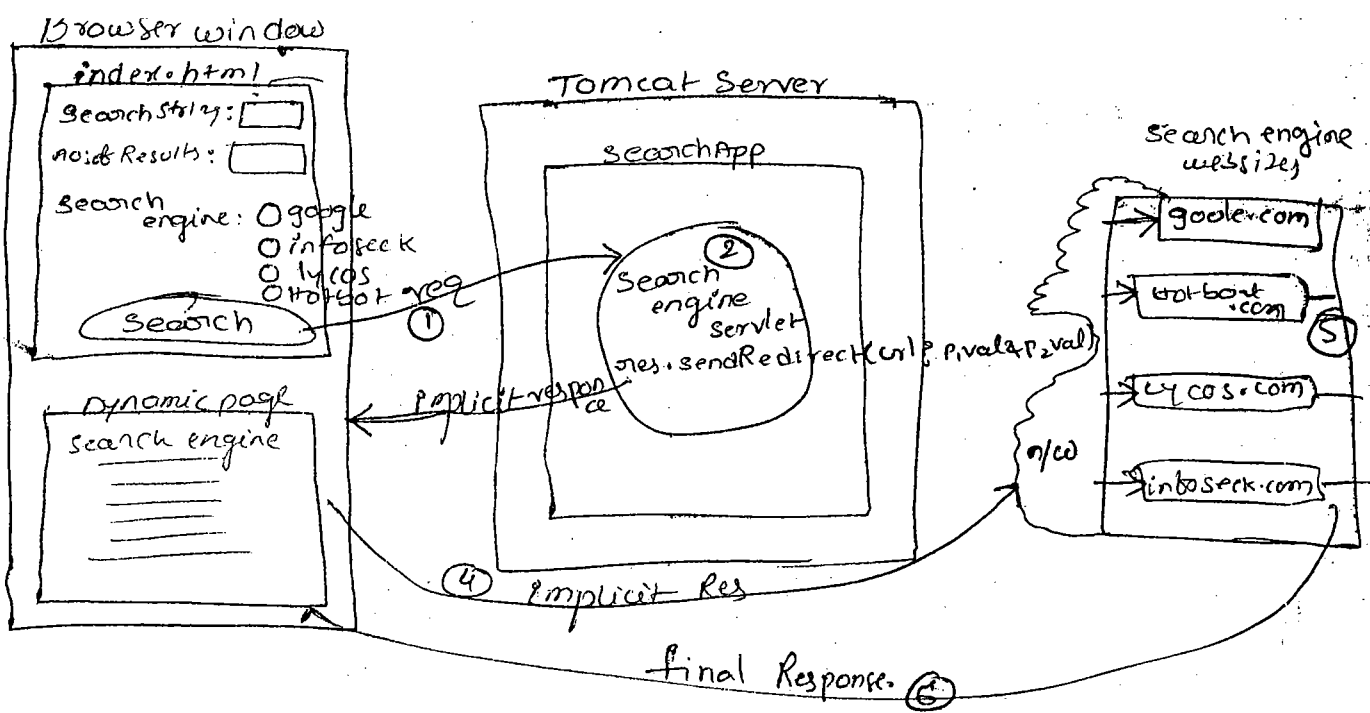 Browser window
index.html
Search String:
No.of Results:
Search
engine:
google
infoseek
lycos
Hotbot
Search
req
1
Dynamic page
Search engine
Tomcat Server
SearchApp
2
Search
engine
servlet
res.sendRedirect(url? p1val&p2val)
implicit respon
ce
4
Implicit Res
final Response.
6
Search engine
websites
goole.com
Hotboat
.com
5
Lycos.com
infoseek.com
n/w